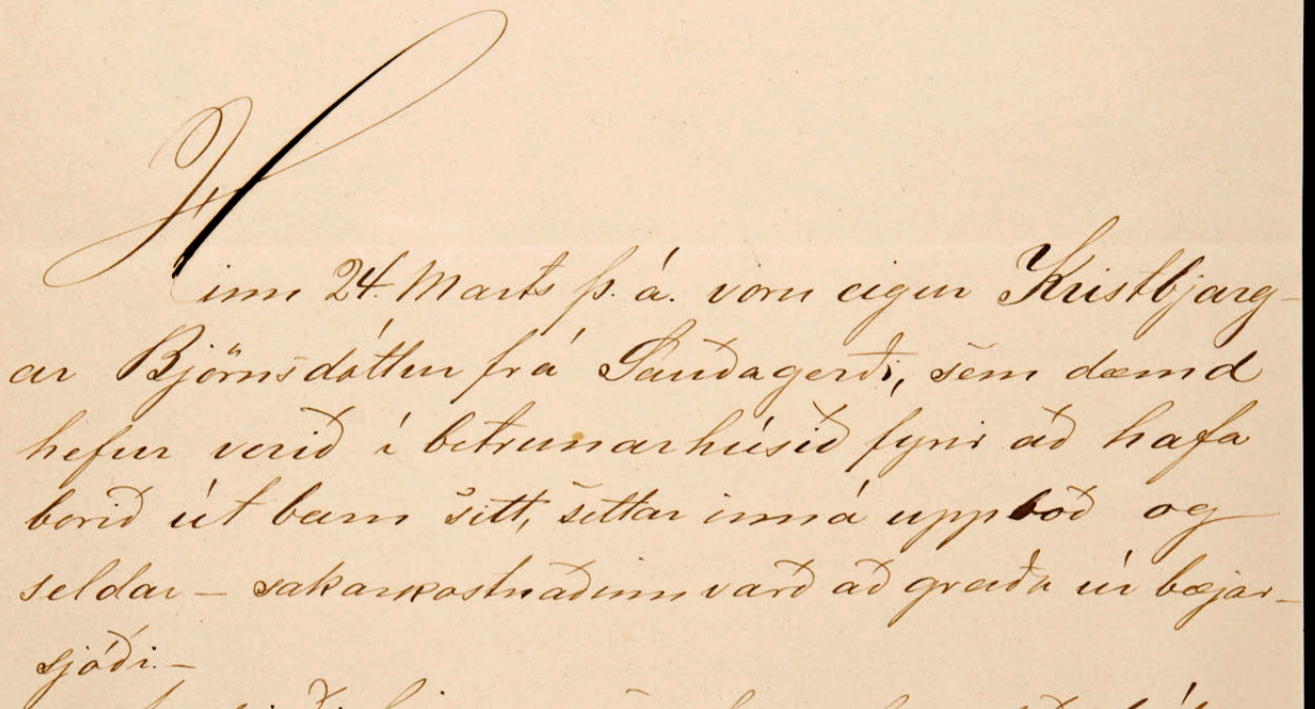 Hinn 24. Marts þ. á. voru eigur Kristbjarg-
ar Björnsdóttur frá Sauðagerði, sem dæmd
hefur verið í betrunarhúsið fyrir að hafa
borið út barn sitt, settar inná uppboð og
seldar – sakarkostnaðinn varð að greiða úr bæjar-
sjóði. –